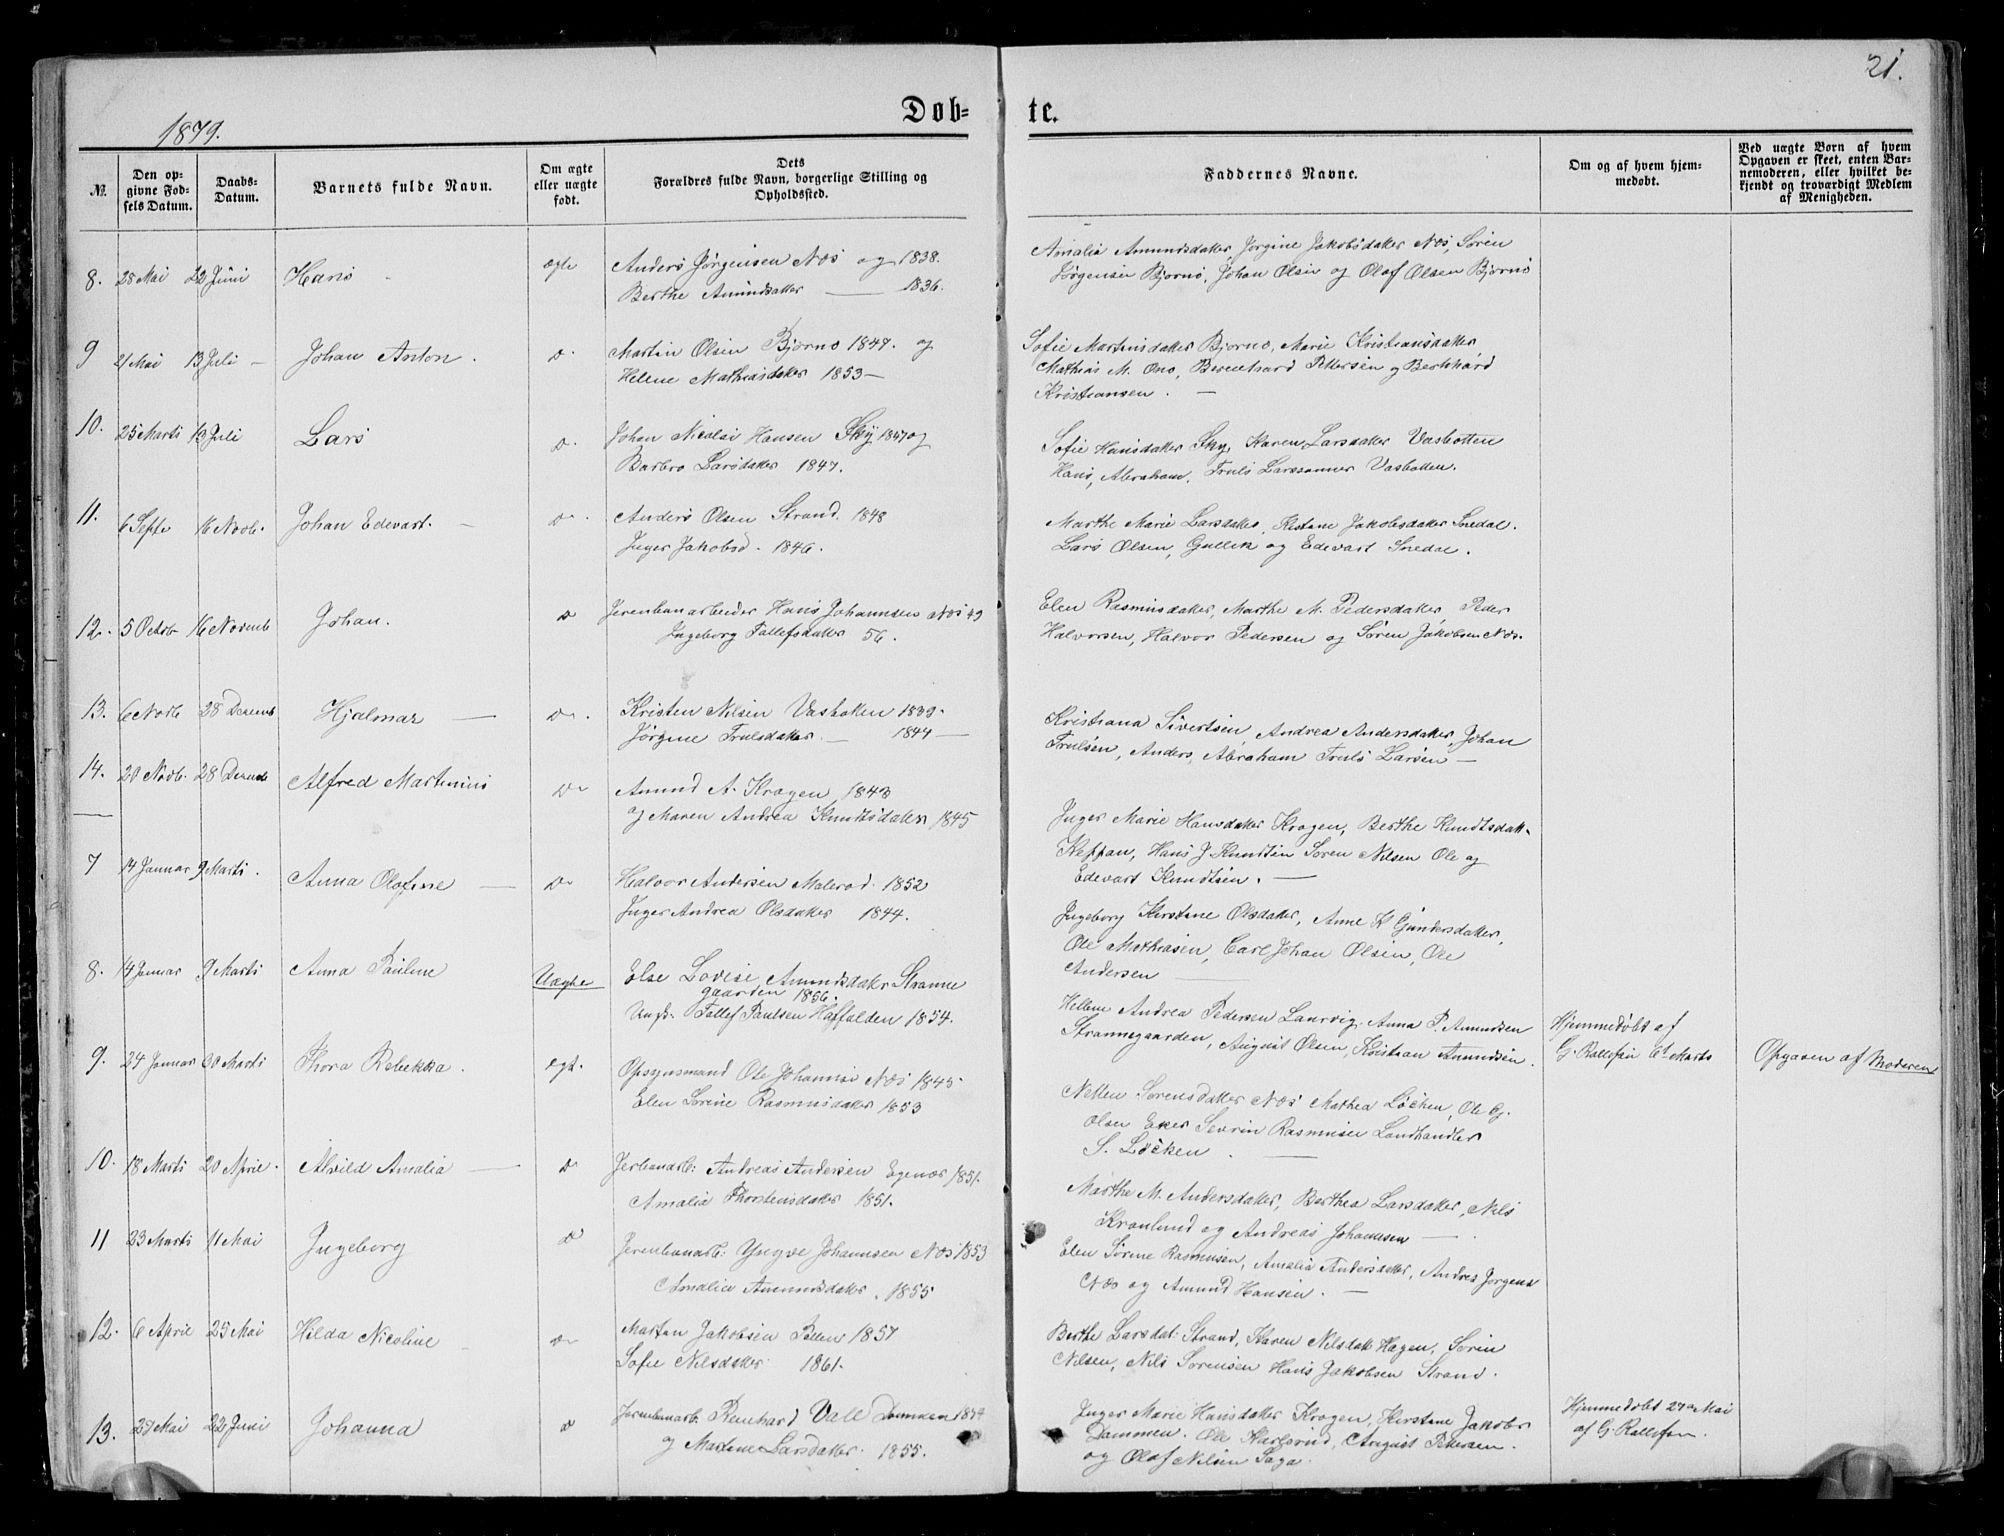 21.
1879.
Døb-
te.
№.
Den opgivne Fødsels Datum.
Daabs-Datum.
Barnets fulde Navn.
Om ægte eller uægte født.
Dets Forældres fulde Navn, borgerlige Stilling og Opholdssted.
Faddernes Navne.
Om og af hvem hjemmedøbt.
Ved uægte Børn af hvem Opgaven er skeet, enten Barnemoderen, eller hvilket bekjendt og troværdigt Medlem af Menigheden.
8. 28 Mai 22 Juni Hans ægte
Anders Jørgensen Næs og 1838.
Berthe Amundsdatter — 1836.
Amalia Amundsdatter, Jørgine Jakobsdatter Næs, Søren
Jørgensen Bjørnø, Johan Olsen og Olaf Olsen Bjørnø
9 21 Mai 13 Juli — Johan Anton. D.
Martin Olsen Bjørnø 1847. og
Helene Mathiasdatter 1853 —
Sofie Martinsdatter Bjørnø, Marie Kristiansdatter
Mathias M. Ono, Berenhard Pettersen og Bernhard
Kristiansen. —
10. 25 Marts 13 Juli Lars D.
Johan Nicolai Hansen Sky 1847 og
Barbro Larsdatter 1847.
Sofie Hansdatter Sky, Karen Larsdatter Vasbotten
Hans, Abraham, Truls Larssønner Vasbotten.
11. 6 Septe 16 Novb. Johan Edevart. — D.
Anders Olsen Strand. 1848
Inger Jakobsd. 1846.
Marthe Marie Larsdatter, Kistane Jakobsdatter Snedal.
Lars Olsen, Gullik og Edevart Snedal.
12. 5 Octob 16 Novemb Johan. D
Jernbanarbeider Hans Johannsen Næs 49
Ingeborg Tallefsdatter 56.
Elen Rasmusdatter, Marthe M. Pedersdatter, Peder
Halvorsen, Halvor Pedersen og Søren Jakobsen Næs.
13. 6 Novb 28 Decemb Hjalmar — D.
Kristen Nilsen Vasbotten 1839.
Jørgine Trulsdatter — 1844 —
Kristiana Sivertsen, Andrea Andersdatter, Johan
Trulsen, Anders, Abraham Truls Larsen —
14. 20 Novb. 28 Decemb Alfred Martinius D.
Amund A. Kragen 1843
og Maren Andrea Knudtsdatter 1845
Inger Marie Hansdatter Kragen, Berthe Knudtsdatt.
Heppan, Hans J Knudtsen Søren Nilsen Ole og
Edevart Knudtsen. —
7 14 Januar 9 Marts. Anna Olofine — D.
Halvor Andersen Malerød. 1852
Inger Andrea Olsdatter 1844.
Ingeborg Kirstine Olsdatter, Anne K Gundersdatter,
Ole Mathiasen, Carl Johan Olsen, Ole
Andersen —
8. 14 Januar 9 Marts Anna Pauline Uægte
Else Lovise Amundsdatter Stranne
gaarden 1856.
Ungk. Tallef Paulsen Haffalden 1854.
Hellene Andrea Pedersen Laurvig, Anna P. Amundsen
Strannegaarden, August Olsen, Kristian Amundsen.
Hjemmedøbt af
G. Rallefsen 6t Marts
Opgaven af Moderen
9. 24 Januar 20 Marts Thora Rebekka. egt.
Opsynsmand Ole Johannse Næs 1845.
Elen Sorine Rasmusdatter 1853
Nellen Sorensdatter Næs Mathea Løcken, Ole G.
Olsen Eker Sevrin Rasmusen Landhandler
S. Løcken. —
10. 18 Marts 20 Aprie. Alvild Amalia — D
Jerbanarb: Andreas Andersen Egenæs 1851.
Amalia Thorstensdatter 1851.
Marthe M. Andersdatter, Berthea Larsdatter, Nils
Kronlund og Andreas Johannsen —
11 23 Marts 11 Mai Ingeborg D
Jerenbanarb: Yngve Johannsen Næs 1853
Amalia Amundsdatter. 1855
Elen Sorine Rasmusen, Amalia Andersdatter, Andres Jorgens
Næs og Amund Hansen. —
12. 6 April 25 Mai Hilda Nicoline D.
Martin Jakobsen Pollen 1857
Sofie Nilsdatter 1861.
Berthe Larsdat: Strand, Karen Nilsdatt Hagen, Sørin
Nilsen, Nils Sørensen Hans Jakobsen Strand.
13. 27 Mai 22 Juni Johanna D
Jerenbanarb. Renhard Vall Dammen 1854
og Martine Larsdatter. 1855.
Inger Marie Hansdatter Kragen, Kirstine Jakobs
Dammen. Ole Karlsrud, August Petersen.
og Olaf Nilsen Saga.
Hjemmedøbt 27de Mai
af G. Rallefsen.